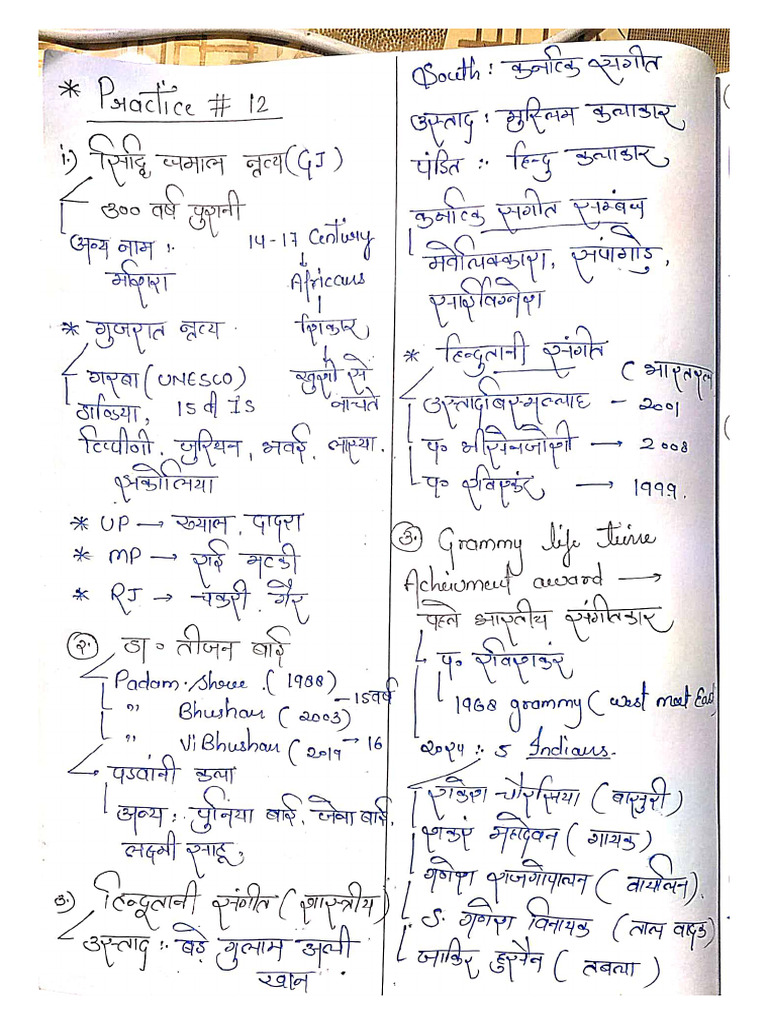 * Practice # 12
i.) सिद्दि धमाल नृत्य (GJ)
300 वर्ष पुरानी
अन्य नाम :- 14-17 Century
Africans
* गुजरात नृत्य - शिकार
गरबा (UNESCO) खुशी से
डांडिया, 15 वी IS नाचते
टिप्पीणी, जुरियन, भवई, लास्या,
अकोलिया
* UP → ख्याल, दादरा
* MP → राई, मटकी
* RJ → चकरी, गैर
२. डा॰ तीजन बाई
Padam Shree (1988)
" Bhushan (2003) - 15 वर्ष
" Vi Bhushan (2019 → 16
पंडवानी कला
अन्य :- पुनिया बाई, जेना बाई,
लक्ष्मी साहू,
3) हिन्दूतानी संगीत (शास्त्रीय)
उस्ताद :- बड़े गुलाम अली
खान
South : कर्नाटिक संगीत
उस्ताद : मुस्लिम कलाकार
पंडित :- हिन्दु कलाकार
कर्नाटिक संगीत सम्बंध
* हिन्दुतानी संगीत
(भारतरत्न
उस्ताद बिस्मिल्लाह - 2001
प॰ भीसेनजोशी → 2008
प॰ रविशंकर → 1999.
3. Grammy life time
Acheivment award →
पहले भारतीय संगीतकार
प॰ रविशकंर
1968 grammy (west meet East)
२०२४ :- 5 Indians.
राकेश चौरसिया (बासुरी)
शकंर महादेवन (गायक)
गणेश राजगोपालन (वायलिन).
S. गणेश विनायक (ताल वादक)
जाकिर हुसैन (तबला)